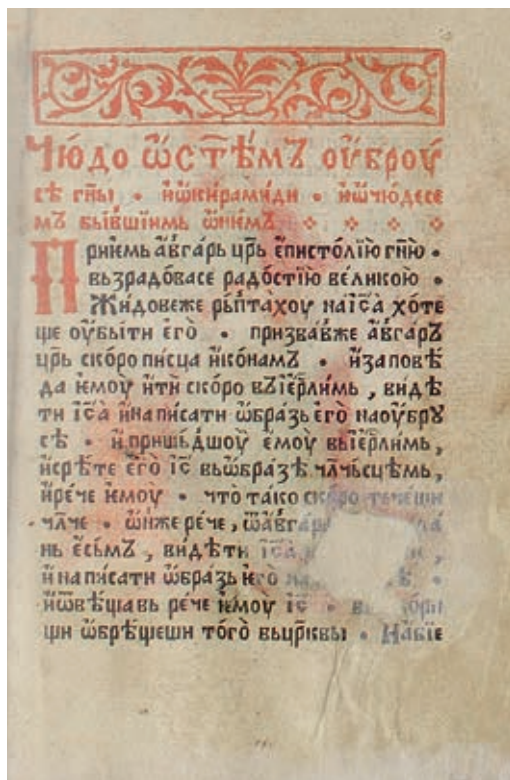 Чю́до ѡ҆ст҃ѣ́мъ ᲂу҆́брᲂу
сѣ гн҃ы • и҆ѡ҆ки́рами́ди • и҆ѡ҆чю́десе
мъ бы́вшїимь ѿни́мъ
Прие́мь а҆́вгарь цр҃ь е҆писто́лїю гн҃ю •
въз̾радо́васе ра́достїю ве́ликою •
Жи́довеже рь́птахоу наі҆с҃а хо́те
ще ᲂу҆бы́ти е҆го̀ • призва́вже а҆́вгаръ
цр҃ь ско́ро пи́сца и҆ко́намъ • и҆запове́
да и҆мᲂу̀ и҆тѝ ско́ро въіе҆рл҃имь , ви́дѣ
ти і҆с҃а и҆на пи́сати ѡ҆́бразь е҆го̀ наᲂу҆́брꙋ
сѣ • и҆ пришь́дшоу е҆моу̀ выіе҆рл҃имь,
и҆срѣ́те е҆го̀ і҆с҃ вьѡ҆́бразѣ чл҃чьсцѣмь,
и҆ре́че и҆мᲂу̀ • что̀ та́ко ско́ро тече́ши
чл҃че • ѡ҆́нже ре́че , ѿа҆вга
нь е҆сы́мъ , ви́дѣти і҆с҃а
и҆ на пи́сати ѡ҆́бразь и҆го̀
и҆ѿвѣ́щавь ре́че и҆мᲂу̀ і҆с҃ •
ши ѡ҆брѣ́щеши то́го вьцр҃квы • На́бїе